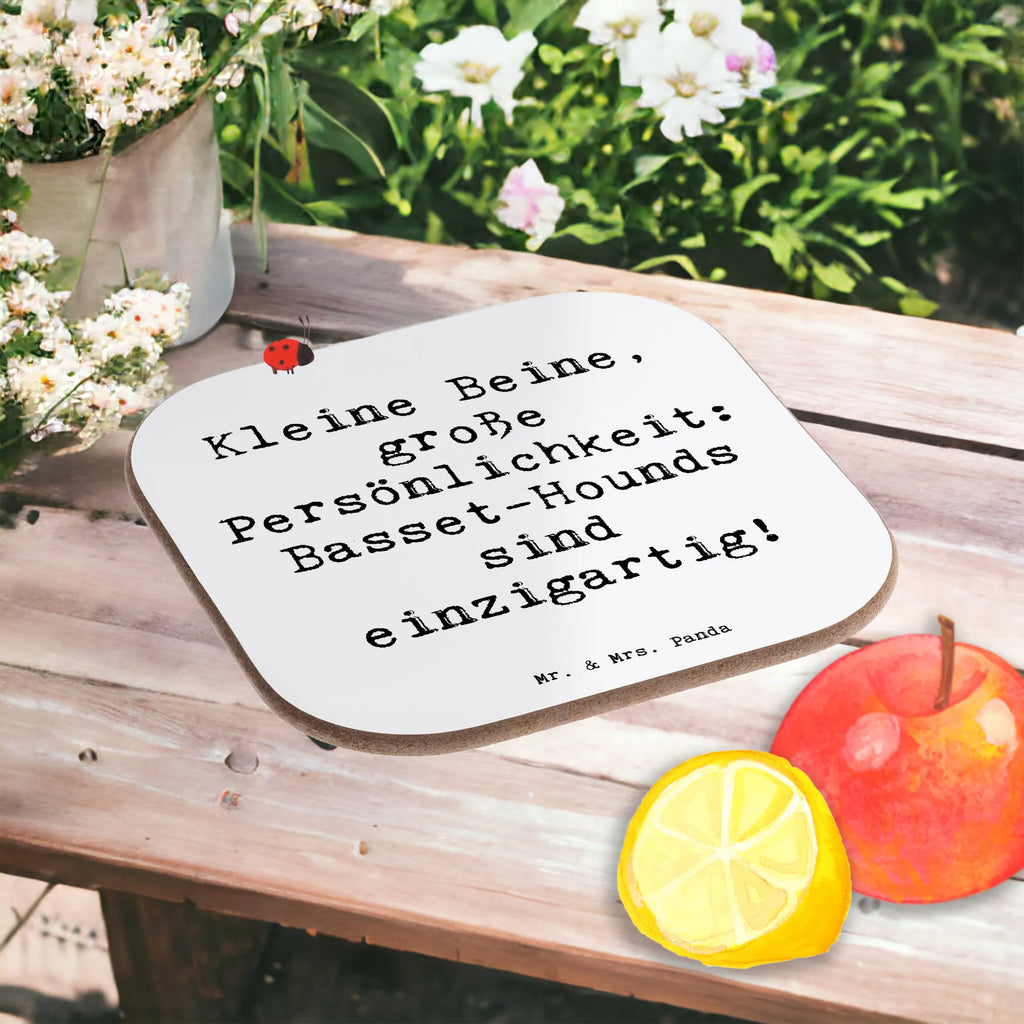 Kleine Beine,
große
Persönlichkeit:
Basset-Hounds
sind
einzigartig!
Mr. & Mrs. Panda